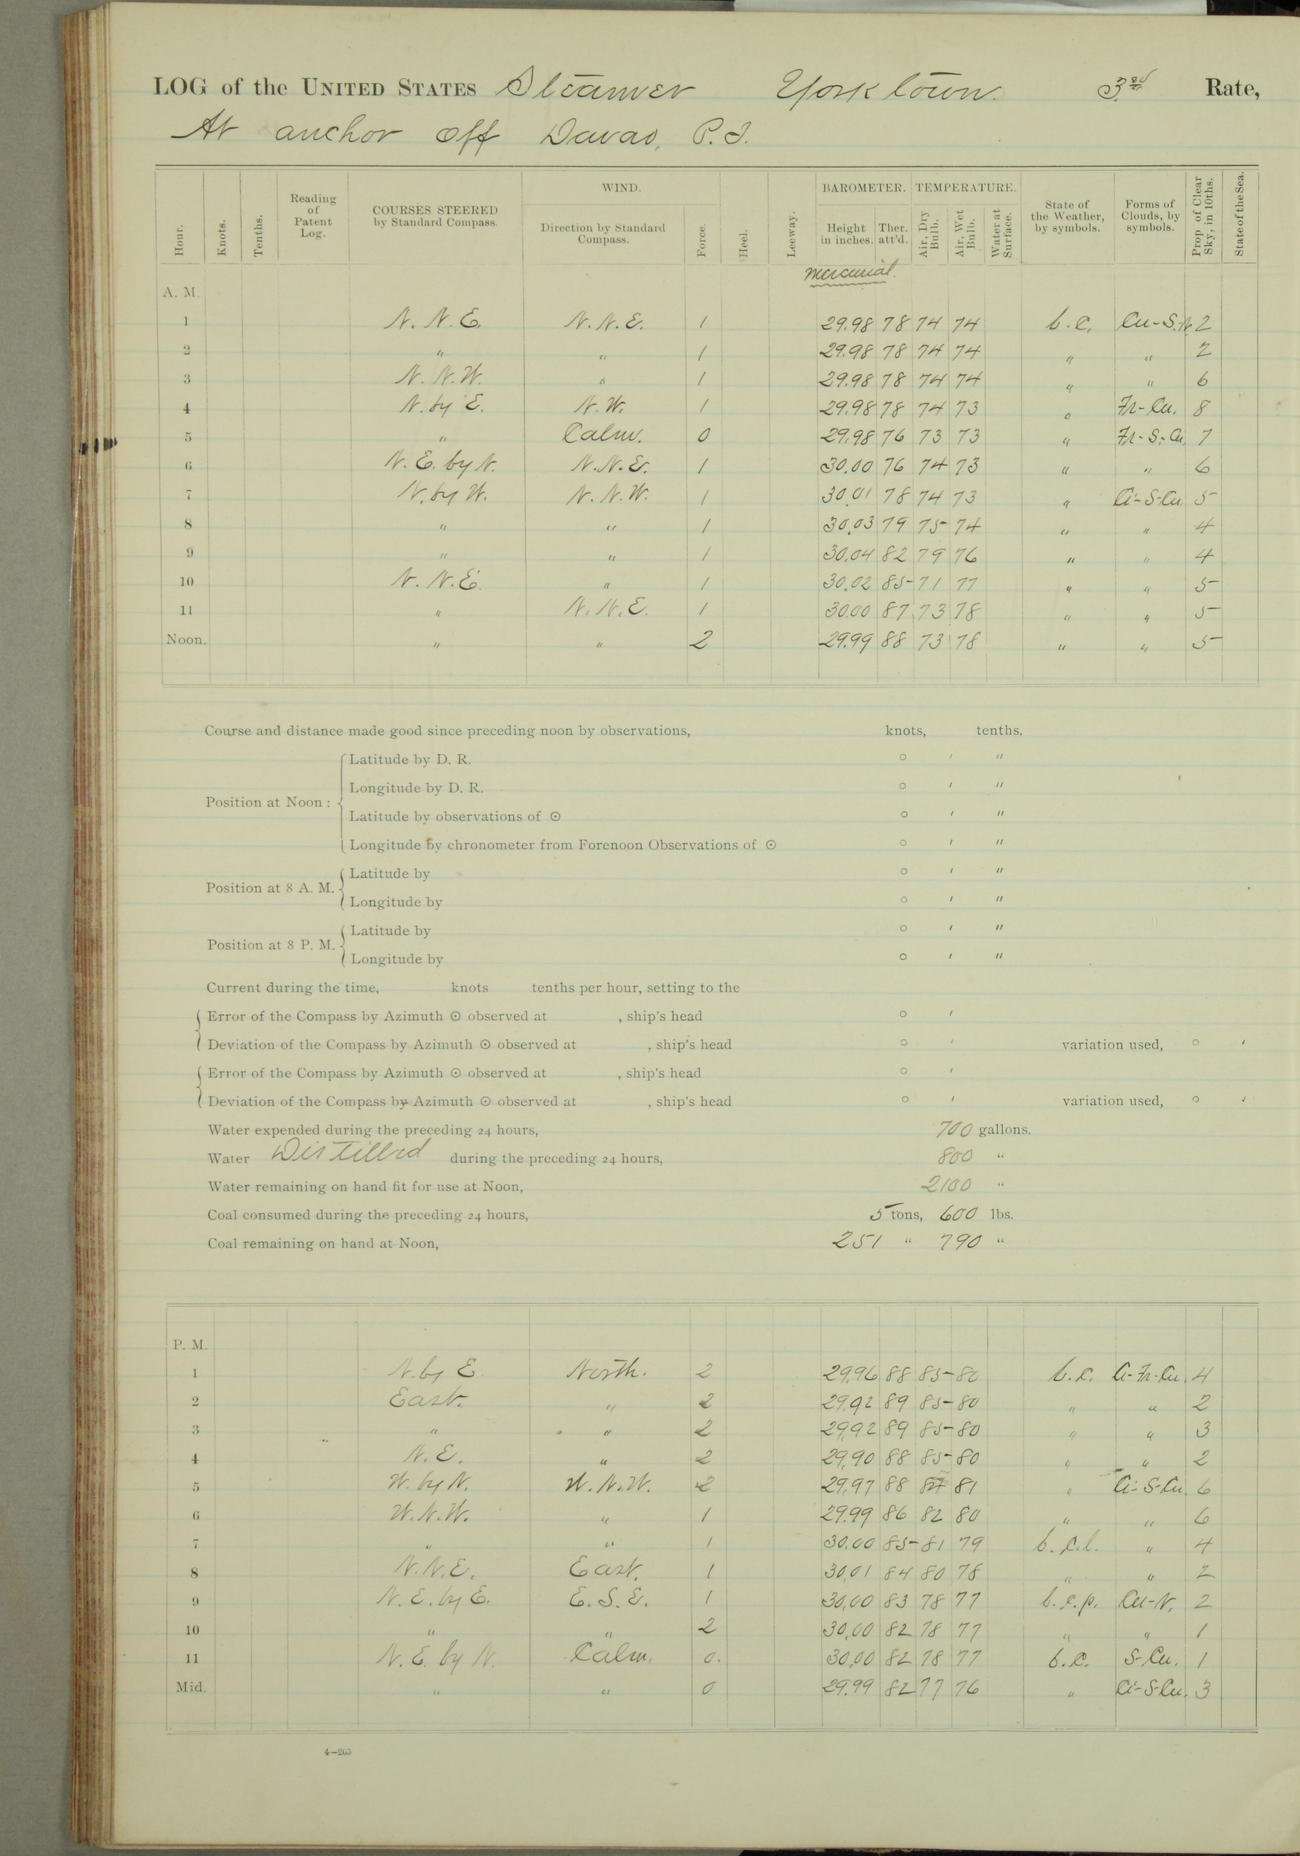 LOG of the UNITED STATES Steamer Yorktown. 3rd Rate,
At anchor off Davao, P.I.
Hour. Knots. Tenths. Reading of Patent Log. COURSES STEERED by Standard Compass. WIND. Direction by Standard Compass. Force. Heel. Leeway. BAROMETER. Height in inches. Ther. att'd. TEMPERATURE. Air, Dry Bulb. Air, Wet Bulb. Water at Surface. State of the Weather, by symbols. Forms of Clouds, by symbols. Prop of Clear Sky, in 10ths. State of the Sea.
mercurial.
A. M.
1 N. N. E. N. N. E. 1 29.98 78 74 74 b. c. Cu-S.-N. 2
2 " " 1 29.98 78 74 74 " " 2
3 N. N. W. " 1 29.98 78 74 74 " " 6
4 N. by E. N. W. 1 29.98 78 74 73 " Fr-Cu. 8
5 " Calm. 0 29.98 76 73 73 " Fr-S-Cu 7
6 N. E. by N. N. N. E. 1 30.00 76 74 73 " " 6
7 N. by W. N. N. W. 1 30.01 78 74 73 " Ci-S-Cu. 5
8 " " 1 30.03 79 75 74 " " 4
9 " " 1 30.04 82 79 76 " " 4
10 N. N. E. " 1 30.02 85 71 77 " " 5
11 " N. N. E. 1 30.00 87 73 78 " " 5
Noon. " " 2 29.99 88 73 78 " " 5
Course and distance made good since preceding noon by observations, knots, tenths.
Position at Noon :
Latitude by D. R. ° ' "
Longitude by D. R. ° ' "
Latitude by observations of ☉ ° ' "
Longitude by chronometer from Forenoon Observations of ☉ ° ' "
Position at 8 A. M.
Latitude by ° ' "
Longitude by ° ' "
Position at 8 P. M.
Latitude by ° ' "
Longitude by ° ' "
Current during the time, knots tenths per hour, setting to the
Error of the Compass by Azimuth ☉ observed at , ship's head ° '
Deviation of the Compass by Azimuth ☉ observed at , ship's head ° ' variation used, ° '
Error of the Compass by Azimuth ☉ observed at , ship's head ° '
Deviation of the Compass by Azimuth ☉ observed at , ship's head ° ' variation used, ° '
Water expended during the preceding 24 hours, 700 gallons.
Water Distilled during the preceding 24 hours, 800 "
Water remaining on hand fit for use at Noon, 2100 "
Coal consumed during the preceding 24 hours, 5 tons, 600 lbs.
Coal remaining on hand at Noon, 251 " 790 "
P. M.
1 N. by E North. 2 29.96 88 85 80 b. c. Ci-Fr-Cu. 4
2 East. " 2 29.92 89 85 80 " " 2
3 " " 2 29.92 89 85 80 " " 3
4 N. E. " 2 29.90 88 85 80 " " 2
5 W. by N. W. N. W. 2 29.97 88 81 " Ci-S-Cu. 6
6 W. N. W. " 1 29.99 86 82 80 " " 6
7 " " 1 30.00 85 81 79 b. c. l. " 4
8 N. N. E. East. 1 30.01 84 80 78 " " 2
9 N. E. by E. E. S. E. 1 30.00 83 78 77 b. c. p. Cu-N. 2
10 " " 2 30.00 82 78 77 " " 1
11 N. E. by N. Calm. 0. 30.00 82 78 77 b. c. S-Cu. 1
Mid. " " 0 29.99 82 77 76 " Ci-S-Cu. 3
4—263